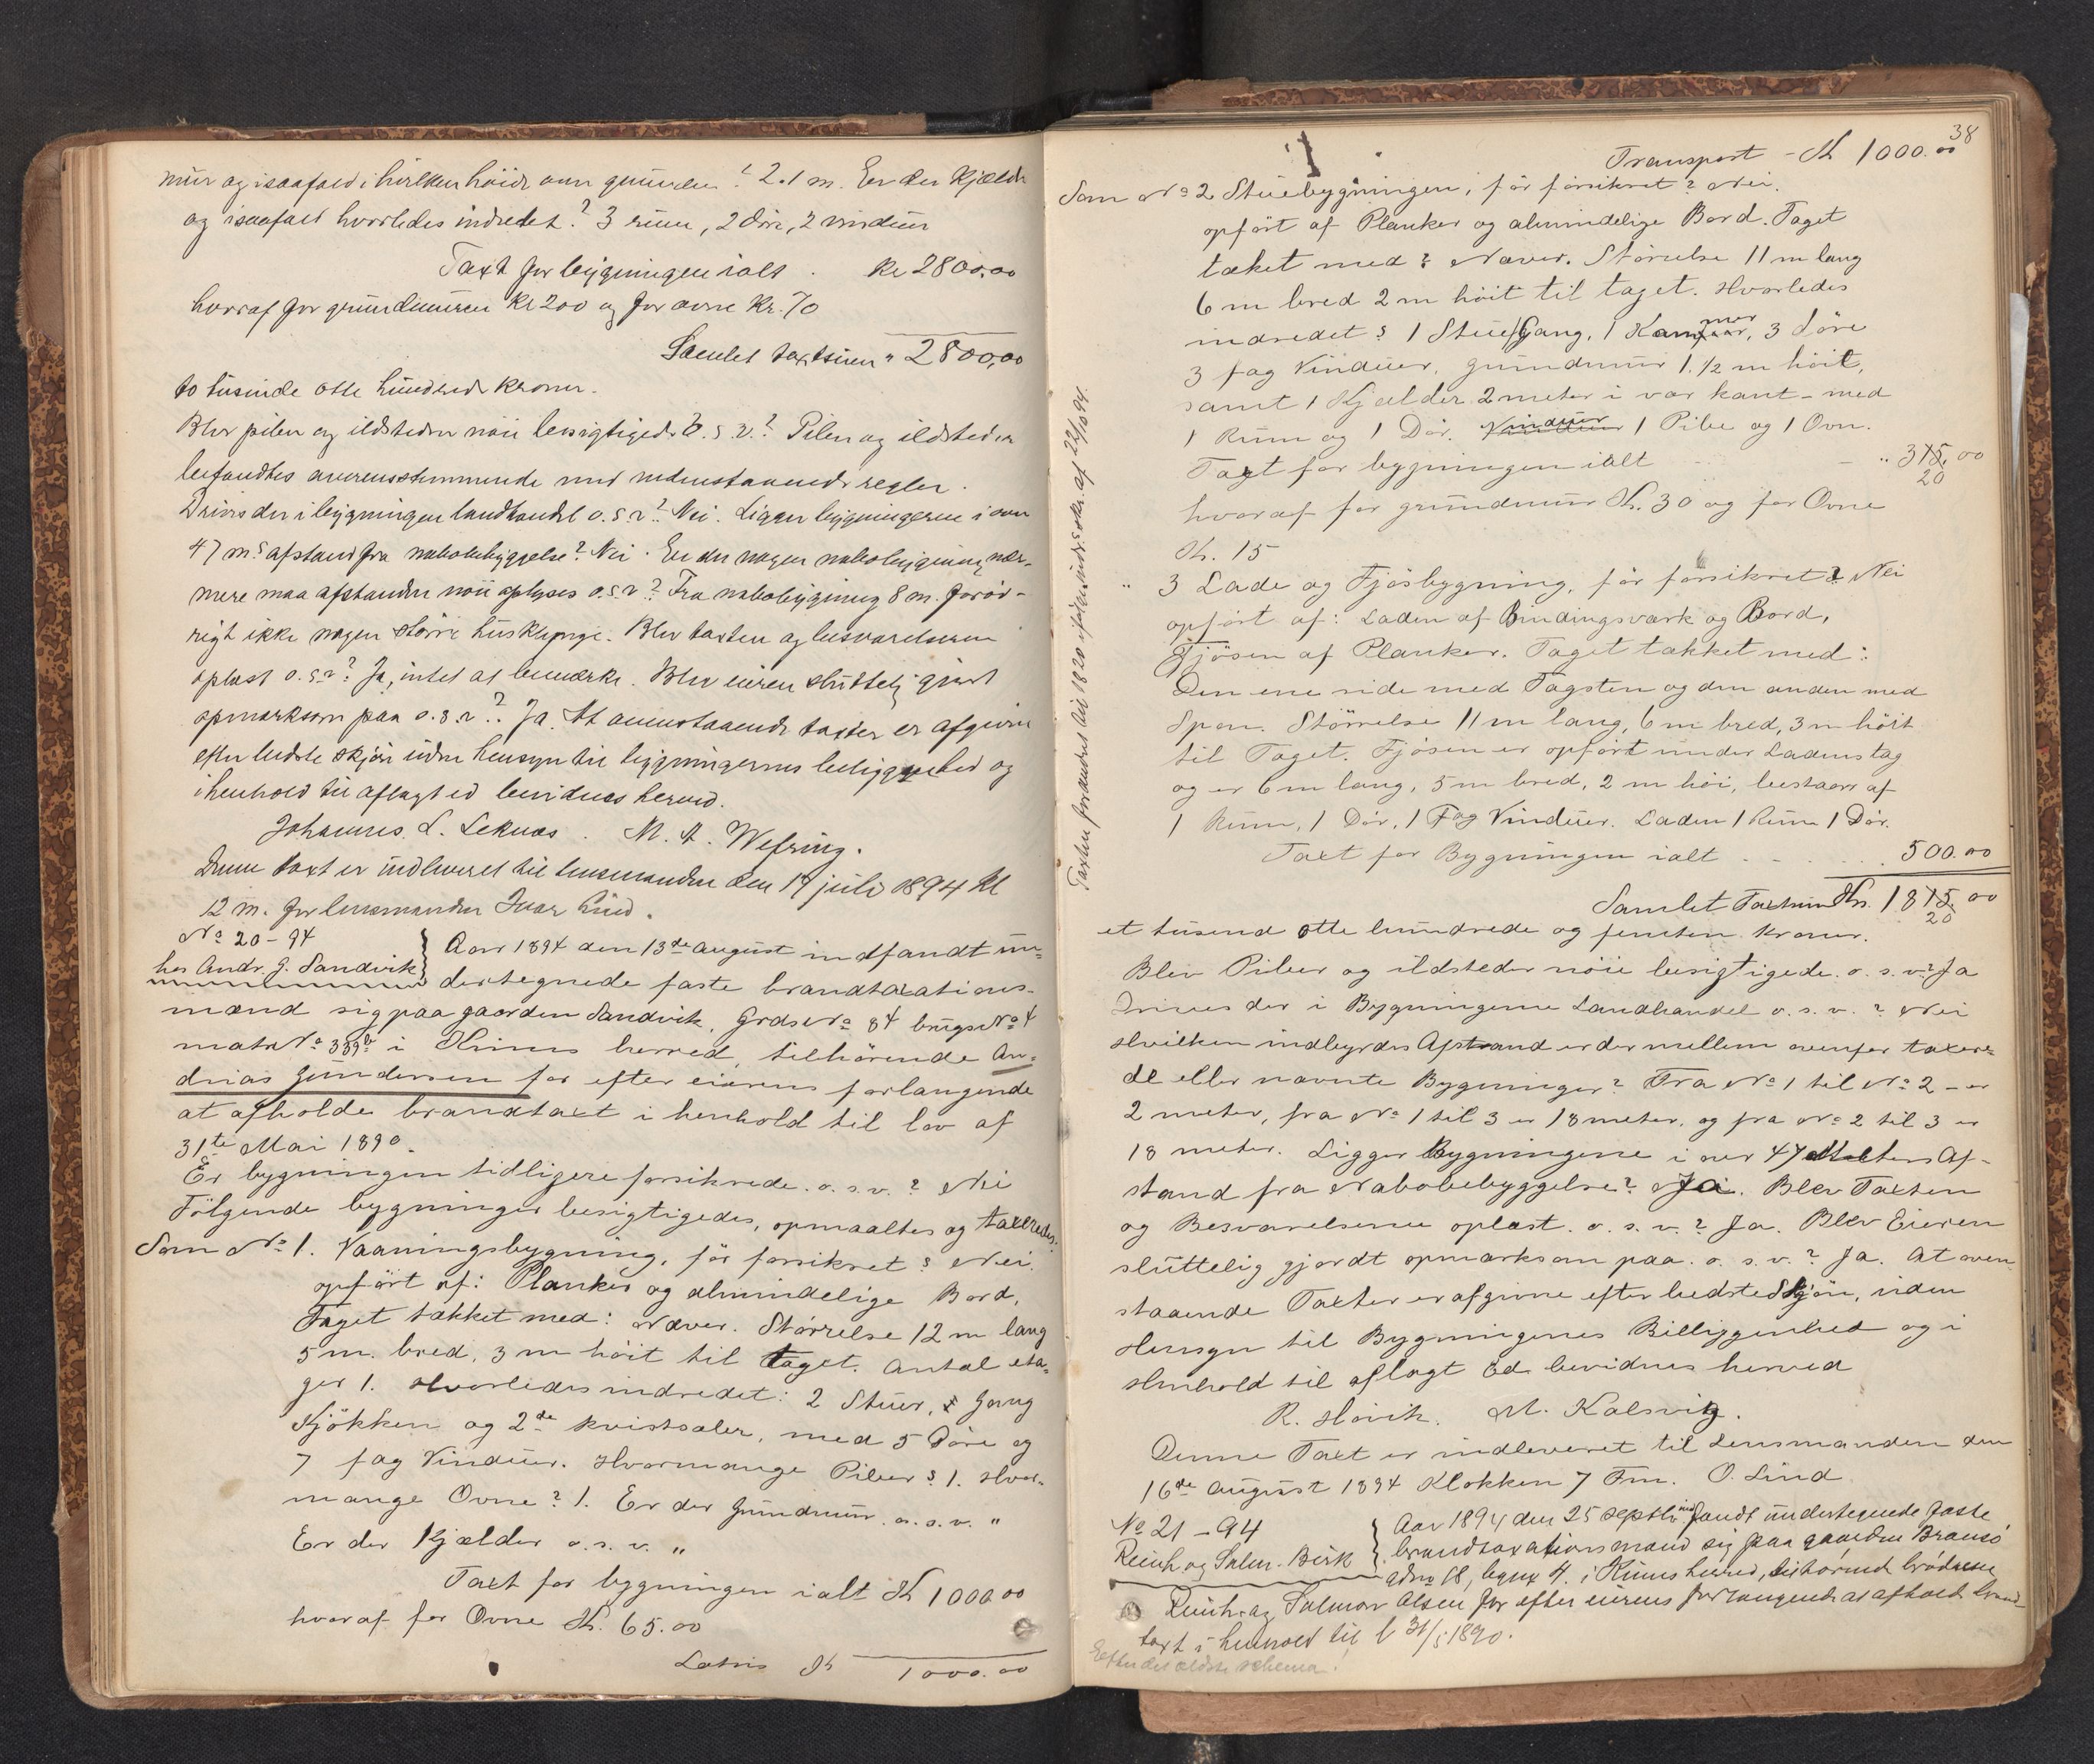 mur og i saafald i hvilken höide over grunden? 2.1 m. Er der Kjælder
og i saafald hvorledes indredet? 3 rum, 2 döre, 2 vinduer
Taxt for bygningen ialt . Kr 2800,00
hvoraf for grundmuren Kr 200 og for ovne Kr. 70
Samlet taxtsum " 2800,00
to tusinde otte hundrede kroner.
Blev piben og ildstederne nöie besigtigede o. s. v.? Piben og ildstederne
befandtes overensstemmende med nedenstaaende regler.
Drives der i bygningen landhandel o. s. v? Nei. Ligger bygningerne i over
47 m.s afstand fra nabobebyggelse? Nei. Er der nogen nabobygning nær-
mere maa afstanden nöie oplyses o. s. v? Fra nabobygning 8 m. foröv-
rigt ikke nogen större husklynge. Blev taxten og besvarelserne
oplæst o. s. v? Ja, intet at bemærke. Blev eieren sluttelig gjort
opmærksom paa o. s. v.? Ja. At ovenstaaende taxter er afgivne
efter bedste skjön uden hensyn til bygningernes beliggenhed og
i henhold til aflagt ed bevidnes herved.
Johannes. L. Leknes . M. A. Wefring.
Denne taxt er indleveret til lensmanden den 17 juli 1894 kl
12 m. for lensmanden Ivar Lind.
No 20 - 94 } Aar 1894 den 13de august indfandt un-
hos Andr. G. Sandvik } dertegnede faste brandtaxations-
mænd sig paa gaarden Sandvik, Grds No 84 brugs No 4
matr No 339b i Kinns herred, tilhörende An-
drias Gundersen for efter eierens forlangende
at afholde brandtaxt i henhold til lov af
31te Mai 1890.
Er bygningen tidligere forsikrede. o. s. v.? Nei
Fölgende bygninger besigtigedes, opmaaltes og taxeredes.
Som No 1. Vaaningsbygning, för forsikret? Nei.
opfört af: Planker og almindelige Bord.
Taget tækket med: Næver. Störrelse 12 m lang
5 m. bred, 3 m höit til taget. Antal eta-
ger 1. Hvorledes indredet: 2 Stuer, Gang
Kjökken og 2de kvistsaler, med 5 Döre og
7 fag Vinduer. Hvormange Piber? 1. Hvor-
mange Ovne? 1. Er der Grundmur. o. s. v. "
Er der Kjælder o. s. v. "
Taxt for bygningen ialt Kr 1000.00
hvoraf for Ovne Kr. 65.00
Latus Kr 1000.00
38
Transport - Kr 1000.00
Som No 2 Stuebygningen, för forsikret? Nei.
opfört af Planker og almindelige Bord. Taget
tæket med? Næver. Störrelse 11 m lang
6 m bred 2 m höit til taget. Hvorledes
indredet? 1 Stue, Gang, 1 Kammer, 3 Döre
3 fag Vinduer, grundmur 1. 1/2 m höit,
samt 1 Kjælder 2 meter i vær kant - med
1 Rum og 1 Dör. Vinduer 1 Pibe og 1 Ovn.
Taxt for bygningen ialt - " 315,00
20
hvoraf for grundmur Kr. 30 og for Ovne
Kr. 15
" 3 Lade og Fjösbygning, för forsikret? Nei
opfört af: Laden af Bindingsværk og Bord,
Fjösen af Planker. Taget tækket med:
Den ene side med Tagsten og den anden med
Spon. Störrelse 11 m lang, 6 m bred, 3 m höit
til Taget. Fjösen er opfört under Ladens tag
og er 6 m lang, 5 m bred, 2 m höi, bestaar af
1 Rum, 1 Dör, 1 Fag Vinduer. Laden 1 Rum 1 Dör.
Taxt for Bygningen ialt . 500.00
Samlet Taxtsum Kr. 1815.00
20
et tusend otte hundrede og femten kroner.
Blev Piber og ildsteder nöie besigtigede. o. s. v? Ja
Drives der i Bygningerne Landhandel o. s. v. ? Nei
Hvilken indbyrdes Afstand er der mellem ovenfor taxere-
de eller nævnte Bygninger? Fra No 1 til No 2 - er
2 meter, fra No 1 til 3 er 18 meter, og fra No 2 til 3 er
18 meter. Ligger Bygningerne i over 47 Meters Af-
stand fra Nabobebyggelse? Ja. Blev Taxten
og Besvarelserne oplæst. o. s. v.? Ja. Blev Eieren
sluttelig gjordt opmærksom paa. o. s. v.? Ja. At oven-
staaende Taxter er afgivne efter bedste Skjön, uden
Hensyn til Bygningernes Billiggenhed og i
Henhold til aflagt Ed bevidnes herved
R. Hovik. M. Kalsvig.
Denne Taxt er indleveret til Lensmanden den
16de august 1894 Klokken 7 Fm. O. Lind
No 21 - 94 } Aar 1894 den 25 septbr indfandt undertegnede faste
Reinh. og Salm. Birk } brandtaxationsmænd sig paa gaarden Bransö
gdno 18, bgnr 4. i Kinns herred, tilhörende brödrene
Reinh. og Salmon Olsen for efter eierens forlangende at afholde brand-
taxt i henhold til l 31/5 1890.
Efter det ældste schema!
Taxten forandret til 1820 ifölge indr. skr. af 22/10 94.